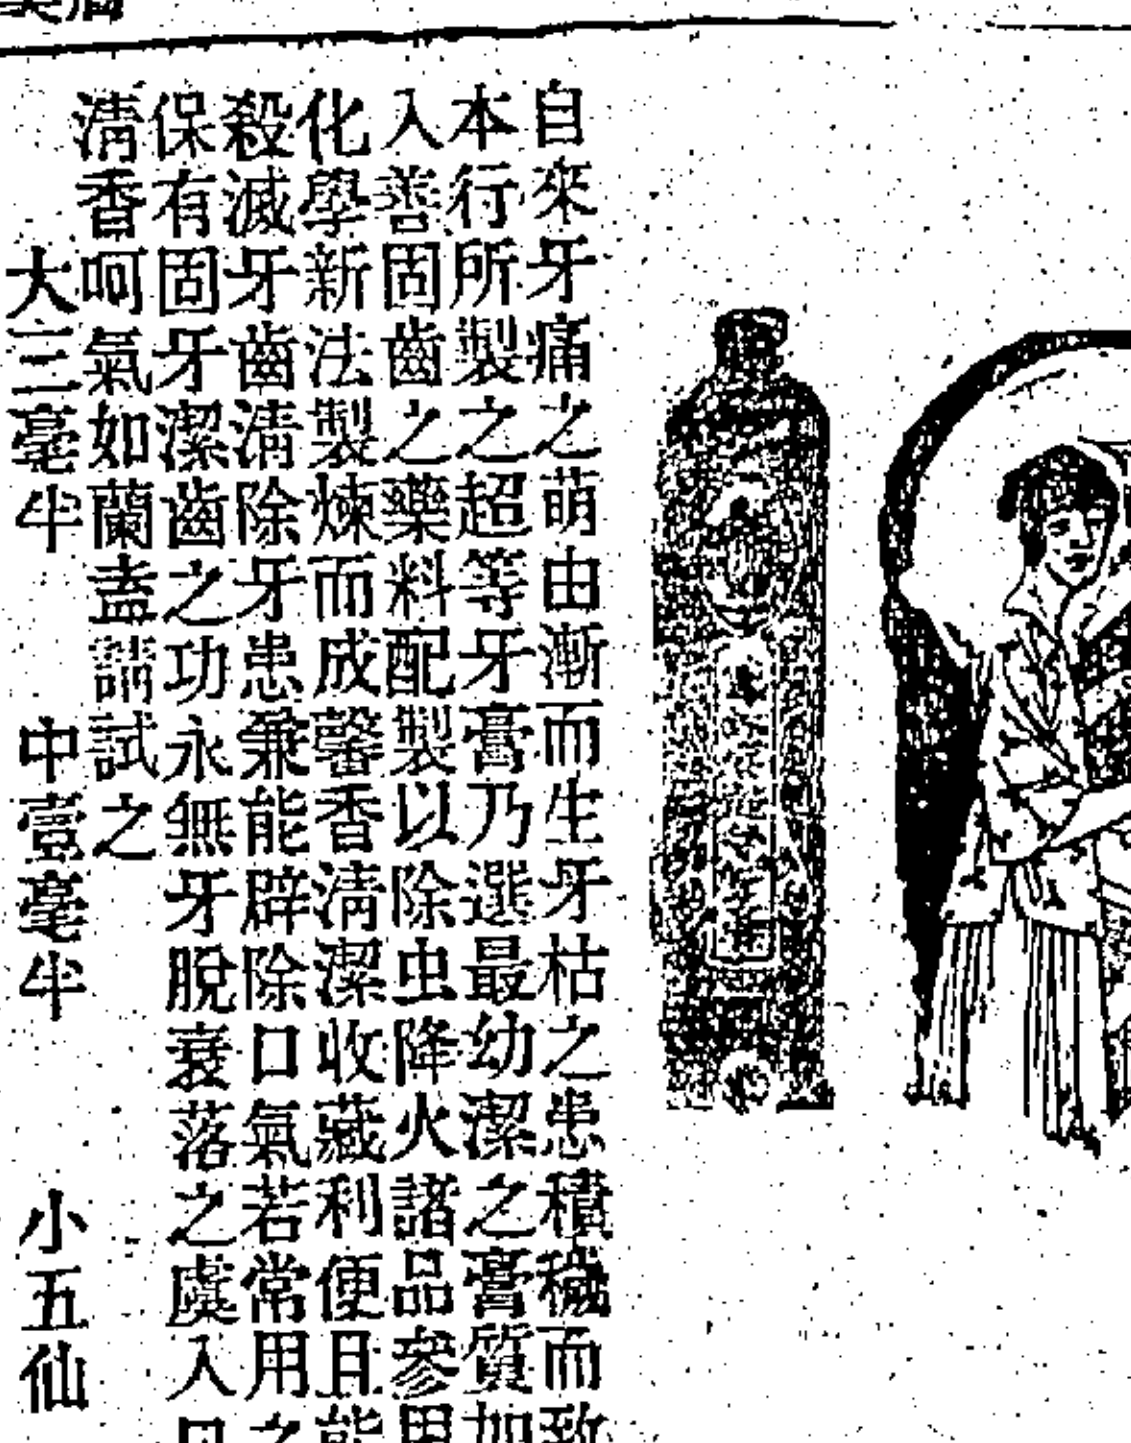 自來牙痛之萌由漸而生牙枯之患積穢而致
本行所製之超等牙膏乃選最幼潔之膏質加
入善固齒之藥料配製以除虫降火諸品參用
化學新法製煉而成馨香清潔收藏利便且能
殺滅牙齒清除牙患兼能辟除口氣若常用之
保有固牙潔齒之功永無牙脫衰落之虞入
清香呵氣如蘭盍請試之
大三毫半 中壹毫半 小五仙